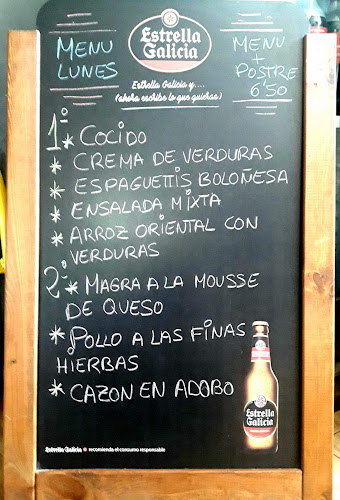 Estrella
Galicia
MENU
LUNES
MENU
+
POSTRE
6'50
Estrella Galicia y....
(ahora escribe lo que quieras)
1º * COCIDO
* CREMA DE VERDURAS
* ESPAGUETTIS BOLOÑESA
* ENSALADA MIXTA
* ARROZ ORIENTAL CON
VERDURAS
2º * MAGRA A LA MOUSSE
DE QUESO
* POLLO A LAS FINAS
HIERBAS
* CAZON EN ADOBO
Estrella
Galicia
Estrella Galicia recomienda el consumo responsable